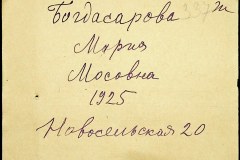 Богдасарова
Мария
Мосовна
1925
Новосельская 20